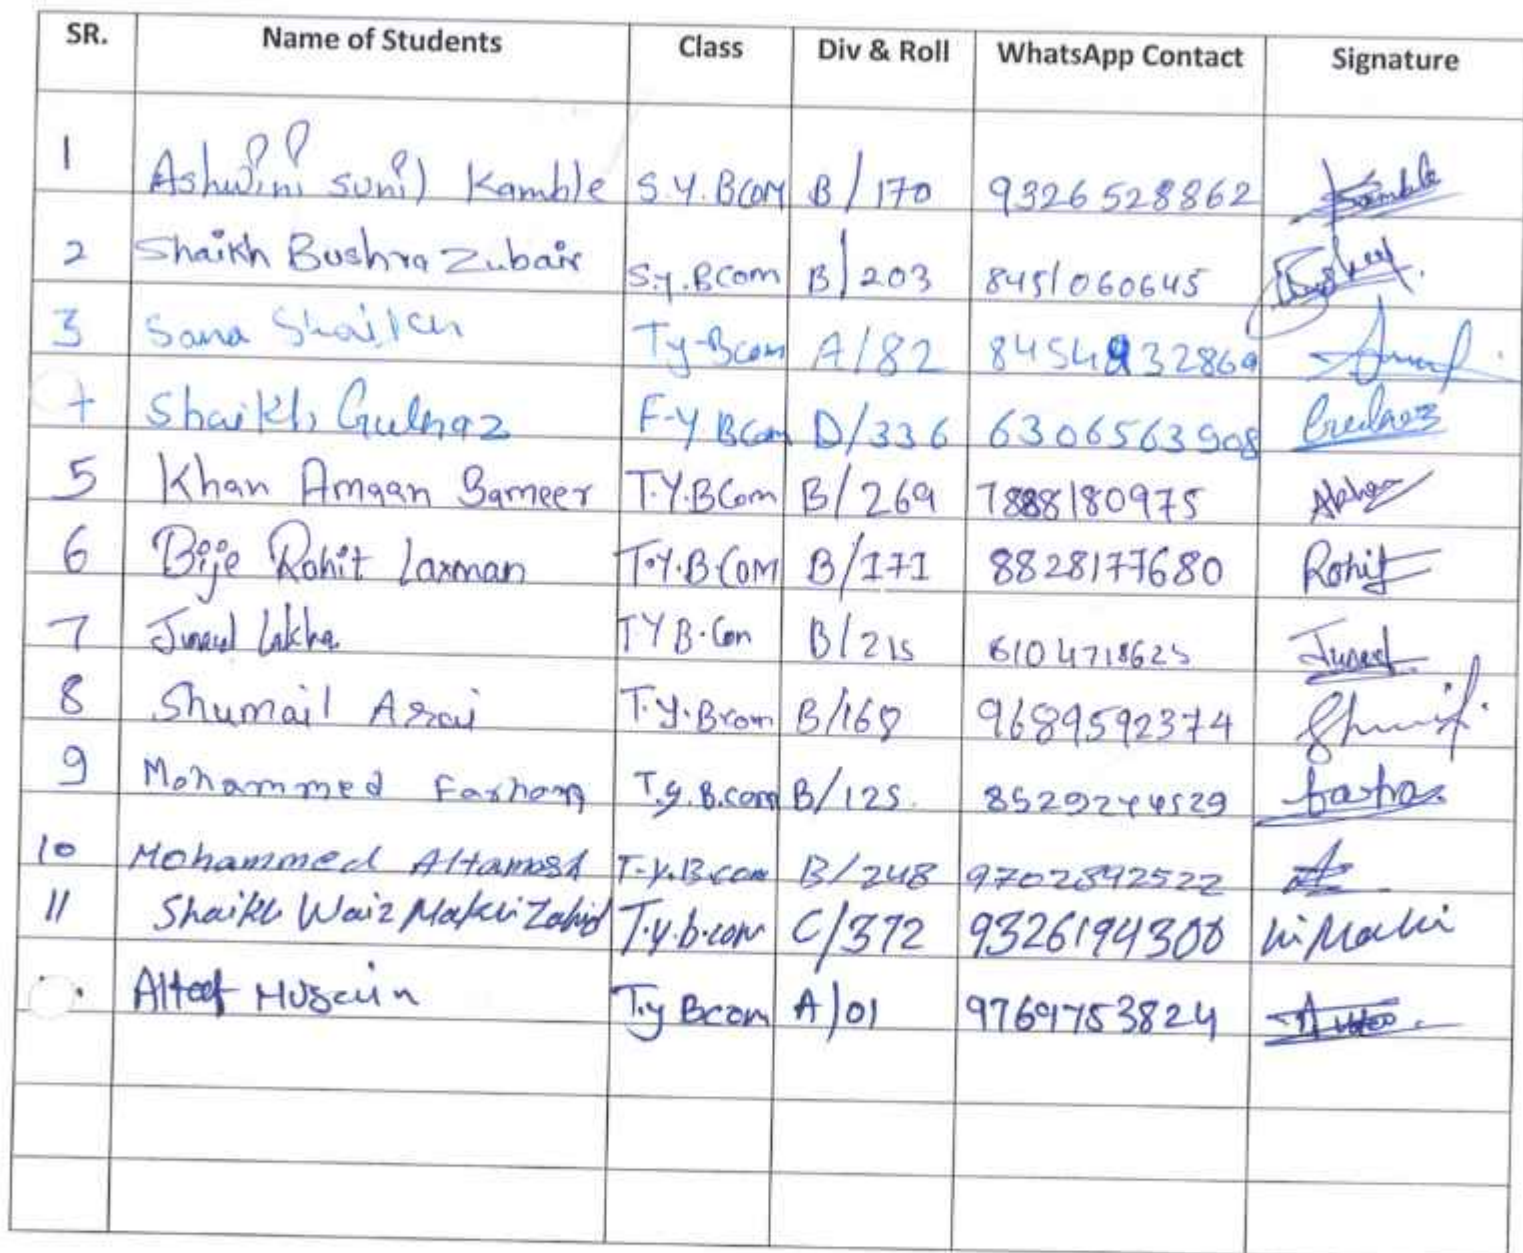 SR. Name of Students Class Div & Roll WhatsApp Contact Signature
1 Ashwini sunil Kamble S.Y.BCOM B/170 9326528862 Kamble
2 Shaikh Bushra Zubair S.y.BCom B/203 8451060645
3 Sana Shaikh Ty-Bcom A/82
Shaikh Gulnaz F-Y BCom D/336 6306563908 Gulnaz
5 Khan Amaan Sameer T.Y.BCom B/269 7888180975
6 Bije Rohit Laxman T.Y.B.COM B/171 8828177680 Rohit
7 Junaid Lakha TY B.Com B/215 6104718625 Junaid
8 Shumail T.Y.Bcom B/168 9689592374
9 Mohammed Farhan T.y.B.com B/125. 8529244529 farhan
10 Mohammed Altamash T.Y.B.com B/248 9702892522
11 Shaikh Waiz Makki Zahid T.y.b.com C/372 9326194300
Altaf Husain T.y Bcom A/01 9769753824